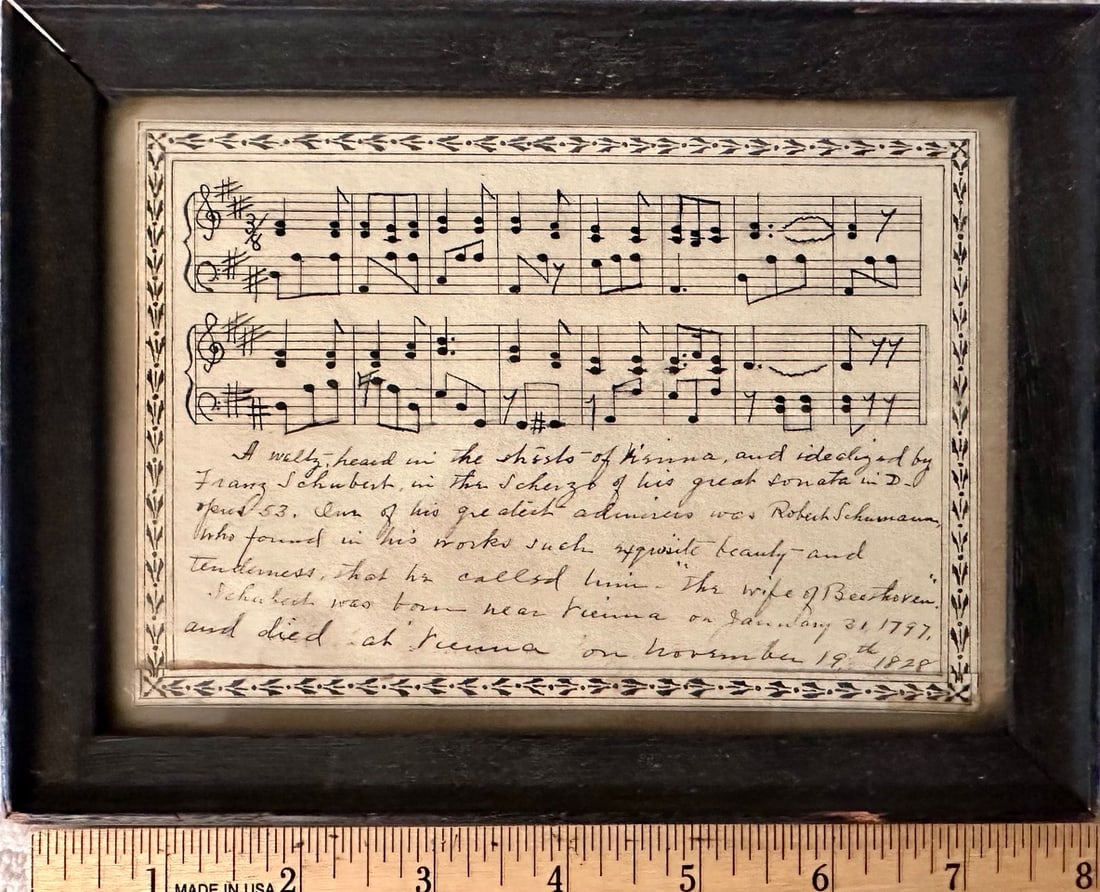 3/8
A waltz, heard in the streets of Vienna, and idealized by
Franz Schubert, in the Scherzo of his great sonata in D-
opus 53. One of his greatest admirers was Robert Schumann,
who found in his works such exquisite beauty and
tenderness, that he called him - "the wife of Beethoven".
Schubert was born near Vienna on January 31, 1797,
and died at Vienna on November 19th 1828
1 MADE IN USA 2 3 4 5 6 7 8